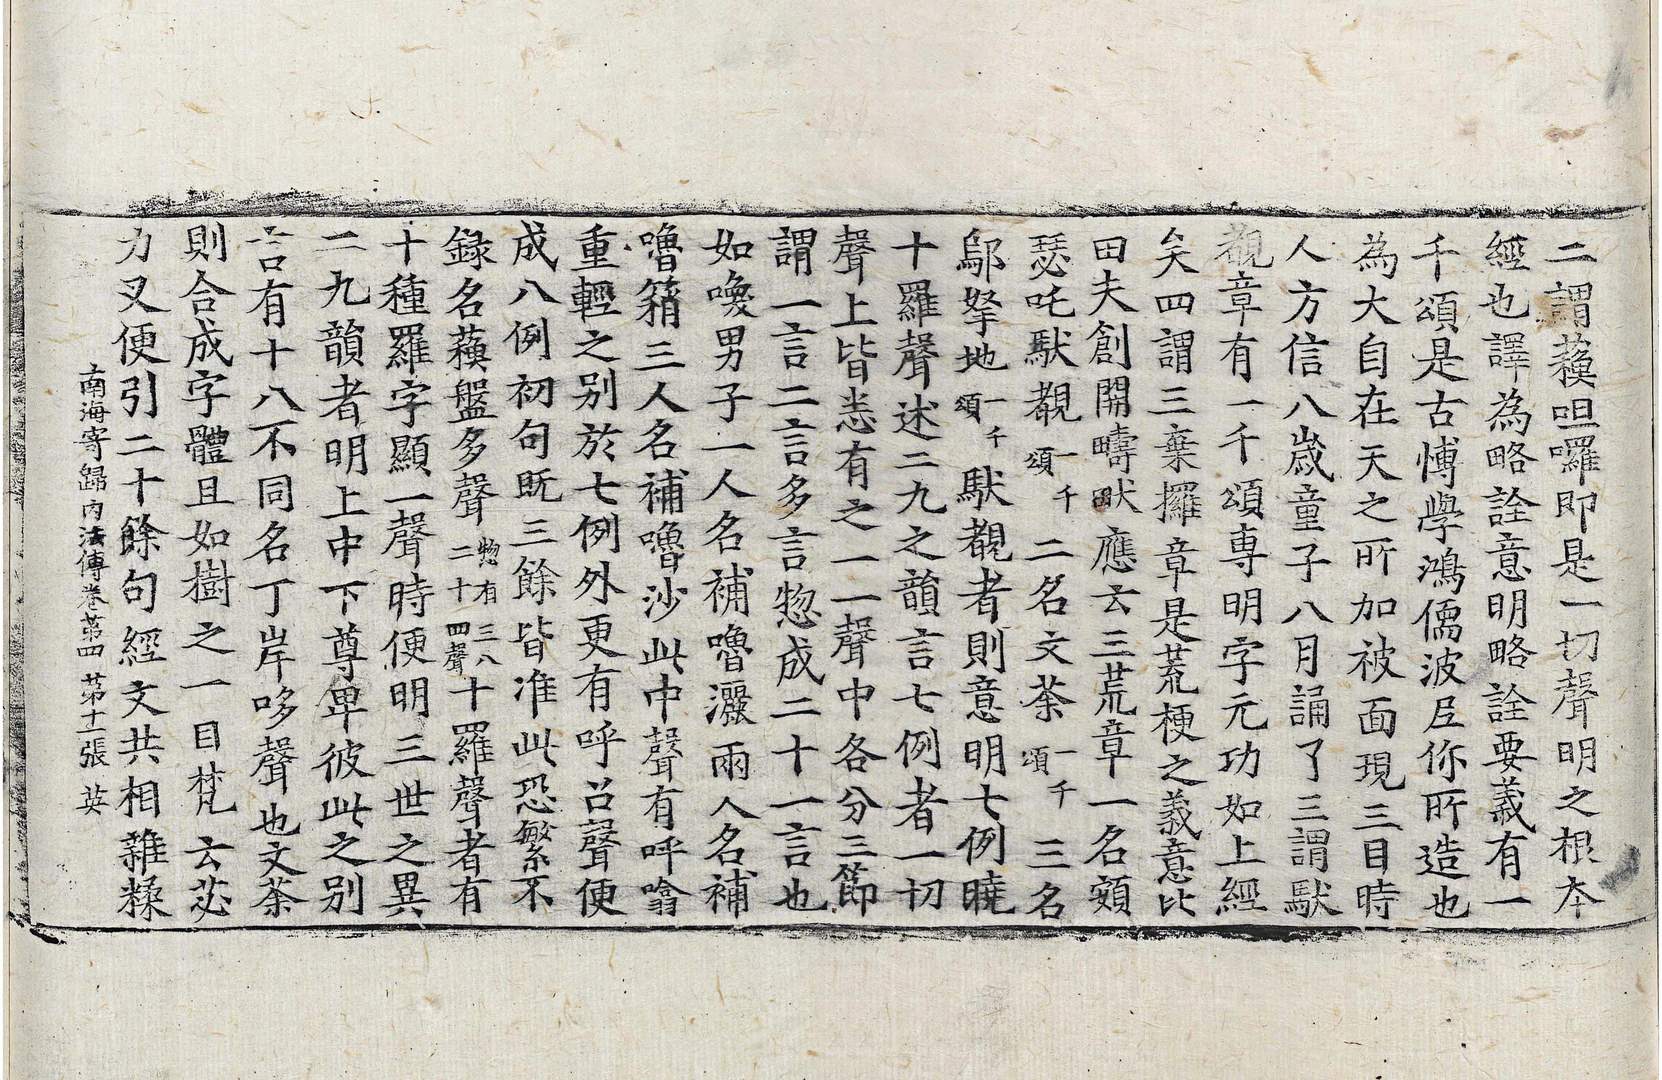 二謂蘓呾囉即是一切聲明之根本
經也譯為略詮意明略詮要義有一
千頌是古博學鴻儒波尼你所造也
為大自在天之所加被面現三目時
人方信八歳童子八月誦了三謂馱
覩章有一千頌專明字元功如上經
矣四謂三棄攞章是荒梗之義意比
田夫創開疇畎應云三荒章一名頞
瑟吒馱覩一千頌二名文荼一千頌三名
鄔拏地一千頌馱覩者則意明七例曉
十羅聲述二九之韻言七例者一切
聲上皆悉有之一一聲中各分三節
謂一言二言多言惣成二十一言也
如喚男子一人名補嚕灑兩人名補
嚕䈕三人名補嚕沙此中聲有呼噏
重輕之別於七例外更有呼召聲便
成八例初句既三餘皆准此恐繁不
録名蘓盤多聲惣有三八二十四聲十羅聲者有
十種羅字顯一聲時便明三世之異
二九韻者明上中下尊卑彼此之別
言有十八不同名丁岸哆聲也文荼
則合成字體且如樹之一目梵云苾
力叉便引二十餘句經文共相雜糅
南海寄歸内法傳卷第四 第十一張 英